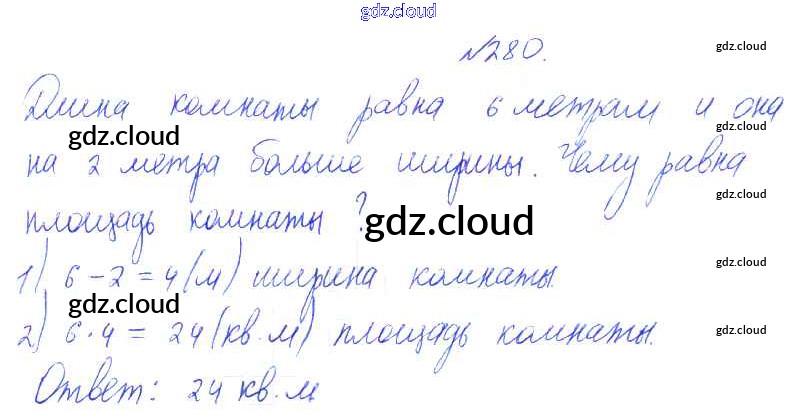 gdz.cloud
№280.
gdz.cloud
Длина комнаты равна 6 метрам и она
gdz.cloud
gdz.cloud
на 2 метра больше ширины. Чему равна
gdz.cloud
площадь комнаты?
gdz.cloud
1) 6 - 2 = 4 (м) ширина комнаты.
gdz.cloud
gdz.cloud
2) 6 · 4 = 24 (кв. м) площадь комнаты.
gdz.cloud
Ответ: 24 кв. м
gdz.cloud